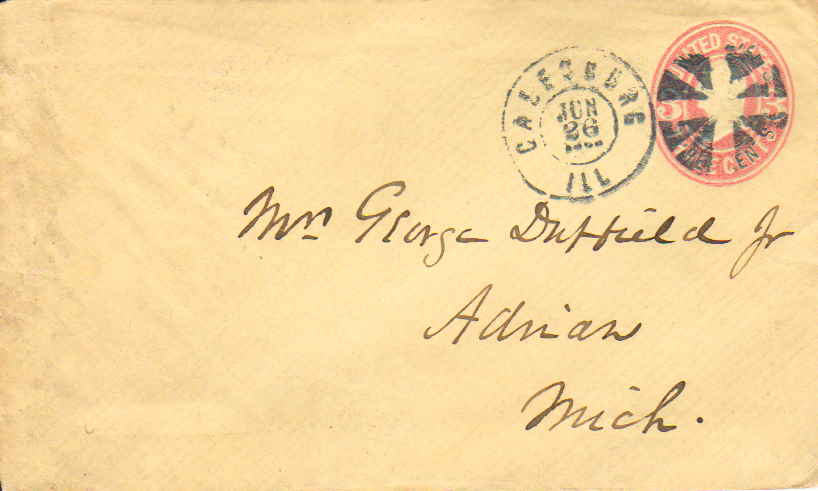 UNITED STATES
3 3
THREE CENTS
GALESBURG
JUN
26
ILL
Mrs George Duffield Jr
Adrian
Mich.